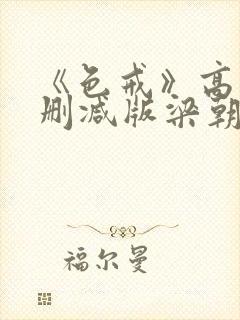 《色戒》高
删减版梁朝
福尔曼